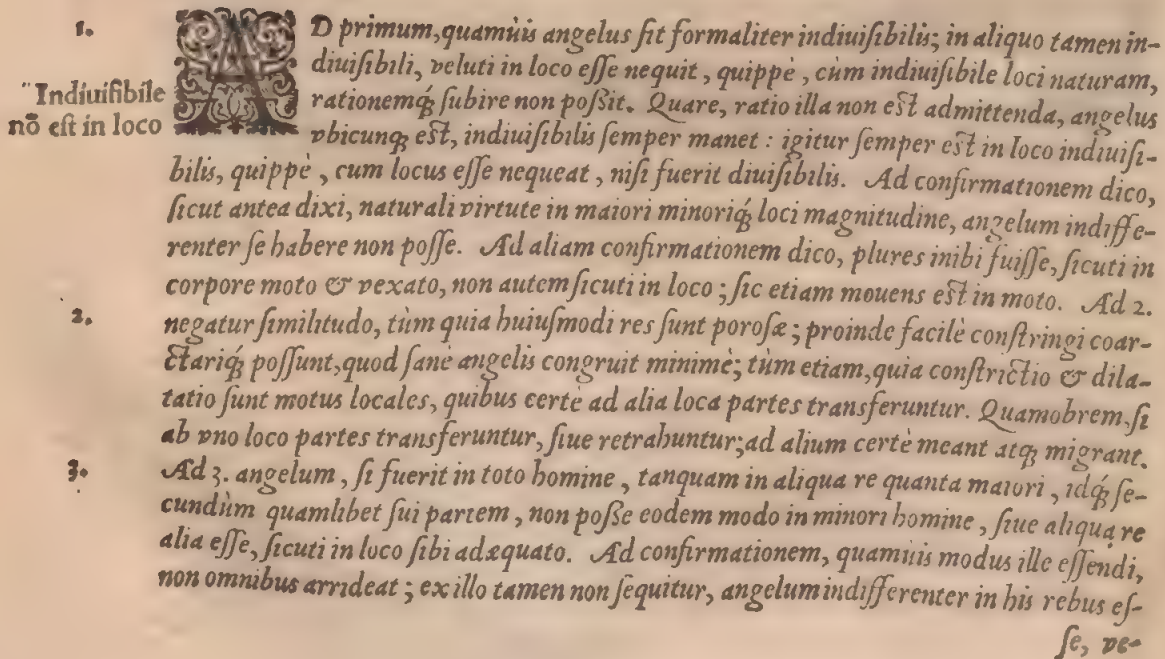 1.
AD primum,quamùis angelus ſit formaliter indiuiſibilis; in aliquo tamen in-
diuiſibili, veluti in loco eſſe nequit, quippè, cùm indiuiſibile loci naturam,
"Indiuiſibile
nō eſt in loco
rationemq́; ſubire non poſsit. Quare, ratio illa non eſt admittenda, angelus
vbicunq; eſt, indiuiſibilis ſemper manet: igitur ſemper eſt in loco indiuiſi-
bilis, quippè, cum locus eſſe nequeat, niſi fuerit diuiſibilis. Ad confirmationem dico,
ſicut antea dixi, naturali virtute in maiori minoriq́; loci magnitudine, angelum indiffe-
renter ſe habere non poſſe. Ad aliam confirmationem dico, plures inibi fuiſſe, ſicuti in
corpore moto & vexato, non autem ſicuti in loco; ſic etiam mouens eſt in moto. Ad 2.
2.
negatur ſimilitudo, tùm quia huiuſmodi res ſunt poroſæ; proinde facilè conſtringi coar-
ctariq́; poſſunt,quod ſanè angelis congruit minimè; tùm etiam,quia conſtrictio & dila-
tatio ſunt motus locales, quibus certè ad alia loca partes transferuntur. Quamobrem,ſi
ab vno loco partes transferuntur, ſiue retrahuntur;ad alium certè meant atq; migrant.
3.
Ad 3. angelum, ſi fuerit in toto homine, tanquam in aliqua re quanta maiori, idq́; ſe-
cundùm quamlibet ſui partem, non poſſe eodem modo in minori homine, ſiue aliqua re
alia eſſe, ſicuti in loco ſibi adæquato. Ad confirmationem, quamùis modus ille eſſendi,
non omnibus arrideat; ex illo tamen non ſequitur, angelum indifferenter in his rebus eſ-
ſe, ve-